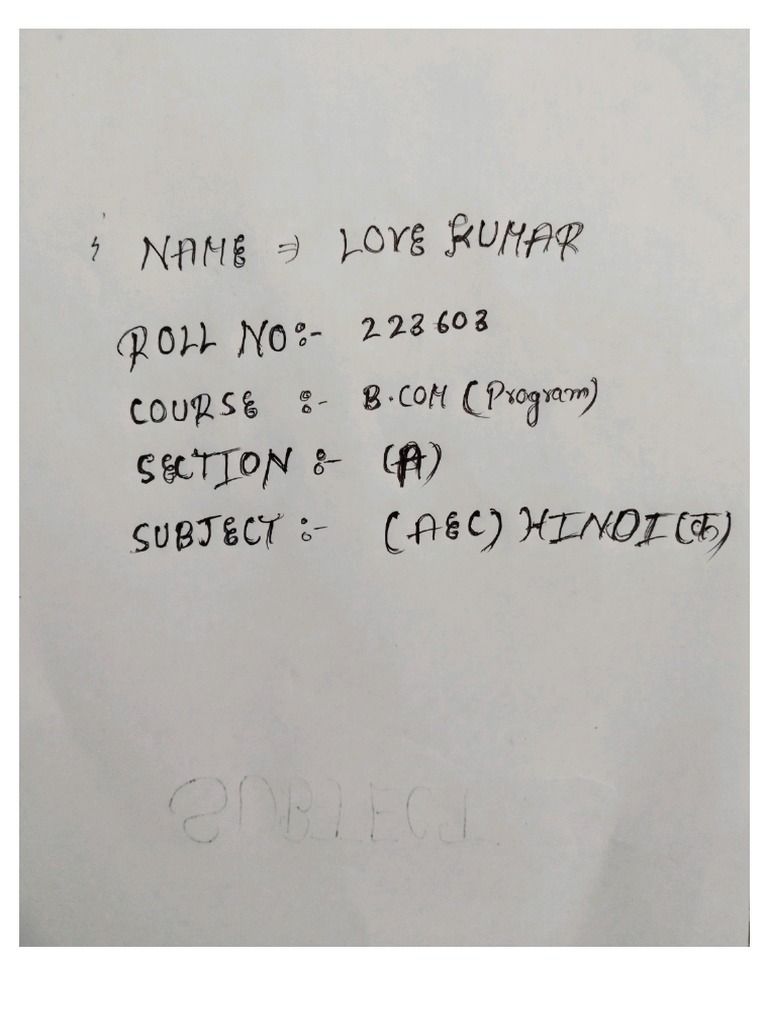 NAME ⇒ LOVE KUMAR
ROLL NO:- 223603
COURSE :- B.COM (Program)
SECTION :- (A)
SUBJECT :- (AEC) HINDI (क)
SUBJECT